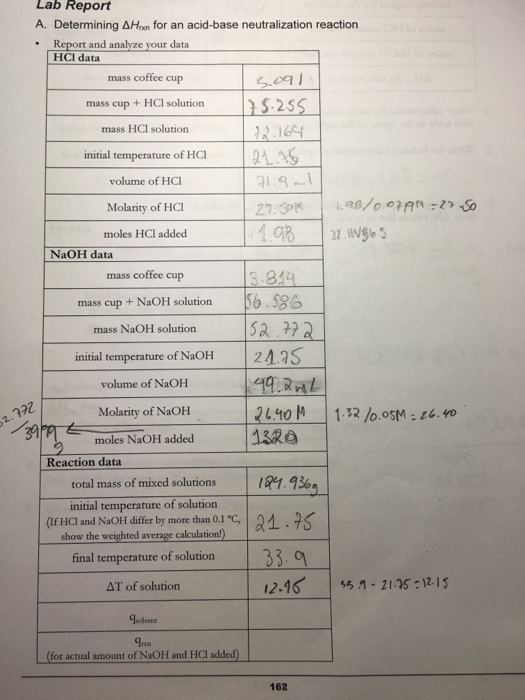 Lab Report
A. Determining ΔHrxn for an acid-base neutralization reaction
• Report and analyze your data
HCl data
mass coffee cup 3.091
mass cup + HCl solution 75.255
mass HCl solution 72.164
initial temperature of HCl 21.75
volume of HCl 71.9 ml
Molarity of HCl 27.50M 1.98/0.0719M = 27.50
moles HCl added 1.98
NaOH data
mass coffee cup 3.814
mass cup + NaOH solution 56.586
mass NaOH solution 52.772
initial temperature of NaOH 21.75
volume of NaOH 49.2mL
52.772 Molarity of NaOH 26.40 M 1.32/0.05M = 26.40
moles NaOH added 1320
Reaction data
total mass of mixed solutions 124.936g
initial temperature of solution
(If HCl and NaOH differ by more than 0.1 °C, 21.75
show the weighted average calculation!)
final temperature of solution 33.9
ΔT of solution 12.15 33.9 - 21.75 = 12.15
qsolvent
qrxn
(for actual amount of NaOH and HCl added)
162